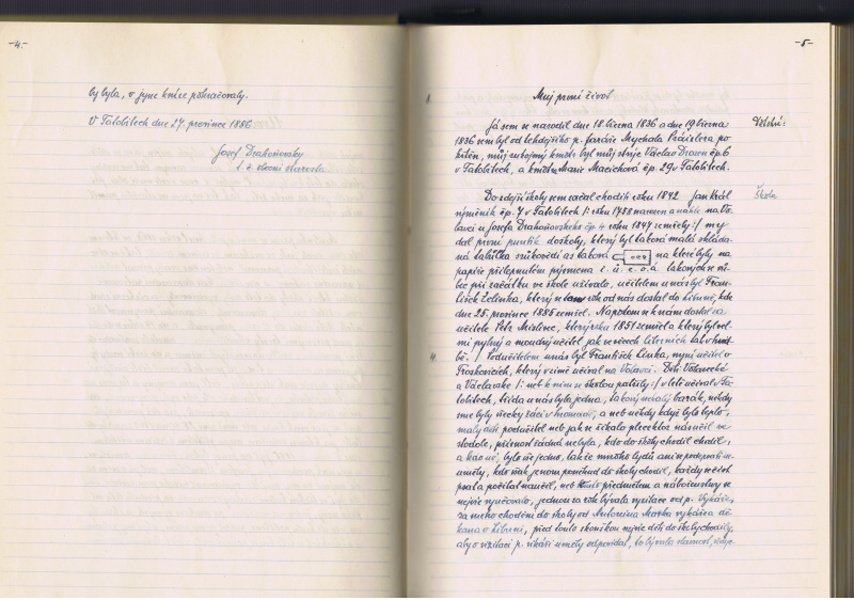 -4.-
by byla, v jync knize pokračovaly.
V Tatobitech dne 27. prosince 1886
Josef Drahoňovský
t. č. obecní starosta.
-5-
Můj první život
Dětství:
Já sem se narodil dne 18. března 1836 a dne 19 března
1836 sem byl od tehdejšího p. faráře Mychala Práislera po
křtěn, můj eurojmý kmotr byl můj strýc Václav Drozen čp. 6
v Tatobitech, a kmotra Marie Macichová čp. 29 v Tatobitech.
Škola
Do zdejší školy sem začal chodit roku 1842 Jan Král
výměnik čp. 7 v Tatobitech /: roku 1788 narozen a nákle na Vo
lavci u Josefa Drahoňovského čp. 4 roku 1847 zemřelý :/ mey
dal první puntík do školy, který byl taková malá skláda-
ná tabulka s rukovědí as taková na které byly na
papíře přilepeném pýsmena i. u. e. o. a. takových se vů-
bec při začátku ve škole užívalo, učitelem u nás byl Fran-
tišek Zelinka, který se tam rok od nás dostal do Libuně, kde
dne 25. prosince 1885 zemřel. Napotom se k nám dostal za
učitele Petr Mislivec, který roku 1851 zemřel a který byl vel-
mi pylný a moudrý učitel jak ve věcech literních tak v hud-
bě. / Podučitelem u nás byl František Linka, nyní učitel v
Troskovicích, který v zimě učíval na Volavci. Děti Volavecké
a Václavske /: neb k nim se školou patřily :/ v létě učíval v Ta-
tobitech, třída u nás byla jedna, takový malý barák, někdy
sme byly všecky žáci v hromadě, a neb někdy když bylo teplo,
malý děti podučitel neb jak se říkalo plecekla nás učil ve
stodole, přísnost žádná nebyla, kdo do školy chodil chodil,
a kdo ne, bylo vše jedno, takže mnoho lydů ani se podepsati ne
uměly, kdo však jenom poněkud do školy chodil, každý se číst
psát a počítat naučil, neb těmto předmětem a náboženstvy se
nejvíc vyučovalo, jednou za rok bývala vyzitace od p. Vykáře,
za mého chodění do školy od Antonina Marka vykářa a dě
kana v Libuni, před touto skouškou nejvíc děti do školy chodily,
aby o vizitaci p. vikáři uměly odpovídat, to bývala slavnost, však